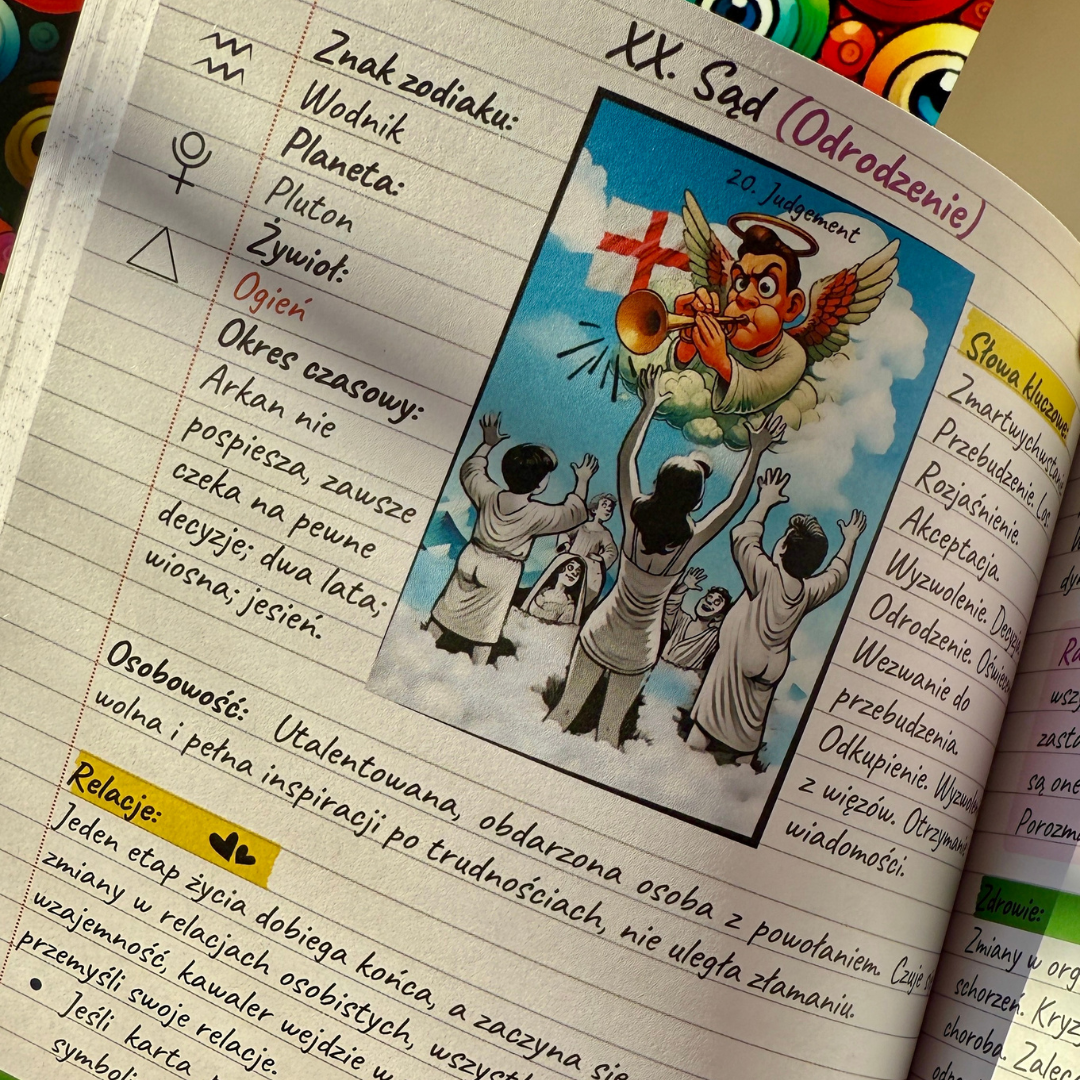 XX. Sąd (Odrodzenie)
Znak zodiaku:
Wodnik
Planeta:
Pluton
Żywioł:
Ogień
Okres czasowy:
Arkan nie
pospiesza, zawsze
czeka na pewne
decyzje; dwa lata;
wiosna; jesień.
20. Judgement
Słowa kluczowe:
Przebudzenie. Los.
Rozjaśnienie.
Akceptacja.
Wyzwolenie.
Odrodzenie.
Wezwanie do
przebudzenia
Odkupienie.
z więzów.
wiadomości.
Osobowość: Utalentowana, obdarzona osoba z powołaniem. Czuje
wolna i pełna inspiracji po trudnościach, nie uległa złamaniu.
Relacje:
Jeden etap życia dobiega końca, a zaczyna się
zmiany w relacjach osobistych,
wzajemność, kawaler wejdzie w
przemyśli swoje relacje.
• Jeśli karta
są one
Zdrowie:
Zmiany w
schorzeń.
choroba.